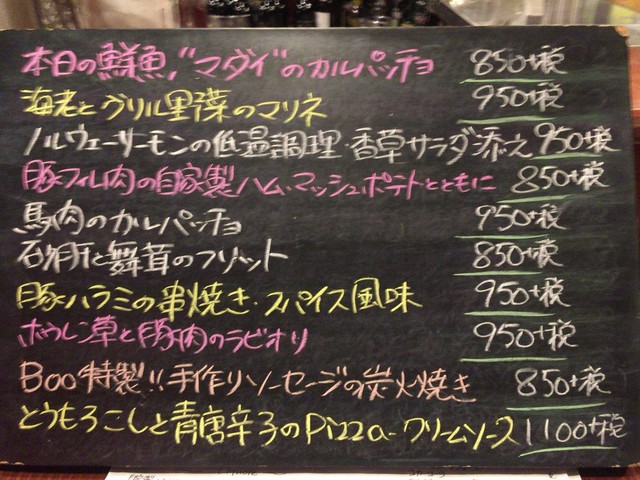 本日の鮮魚"マダイ"のカルパッチョ 850+税
海老とグリル野菜のマリネ 950+税
ノルウェーサーモンの低温調理・香草サラダ添え 950+税
豚フィレ肉の自家製ハム・マッシュポテトとともに 850+税
馬肉のカルパッチョ 950+税
砂肝と舞茸のフリット 850+税
豚ハラミの串焼き・スパイス風味 950+税
ホウレン草と豚肉のラビオリ 950+税
Boo特製!!手作りソーセージの炭火焼き 850+税
とうもろこしと青唐辛子のPizza-クリームソース 1100+税